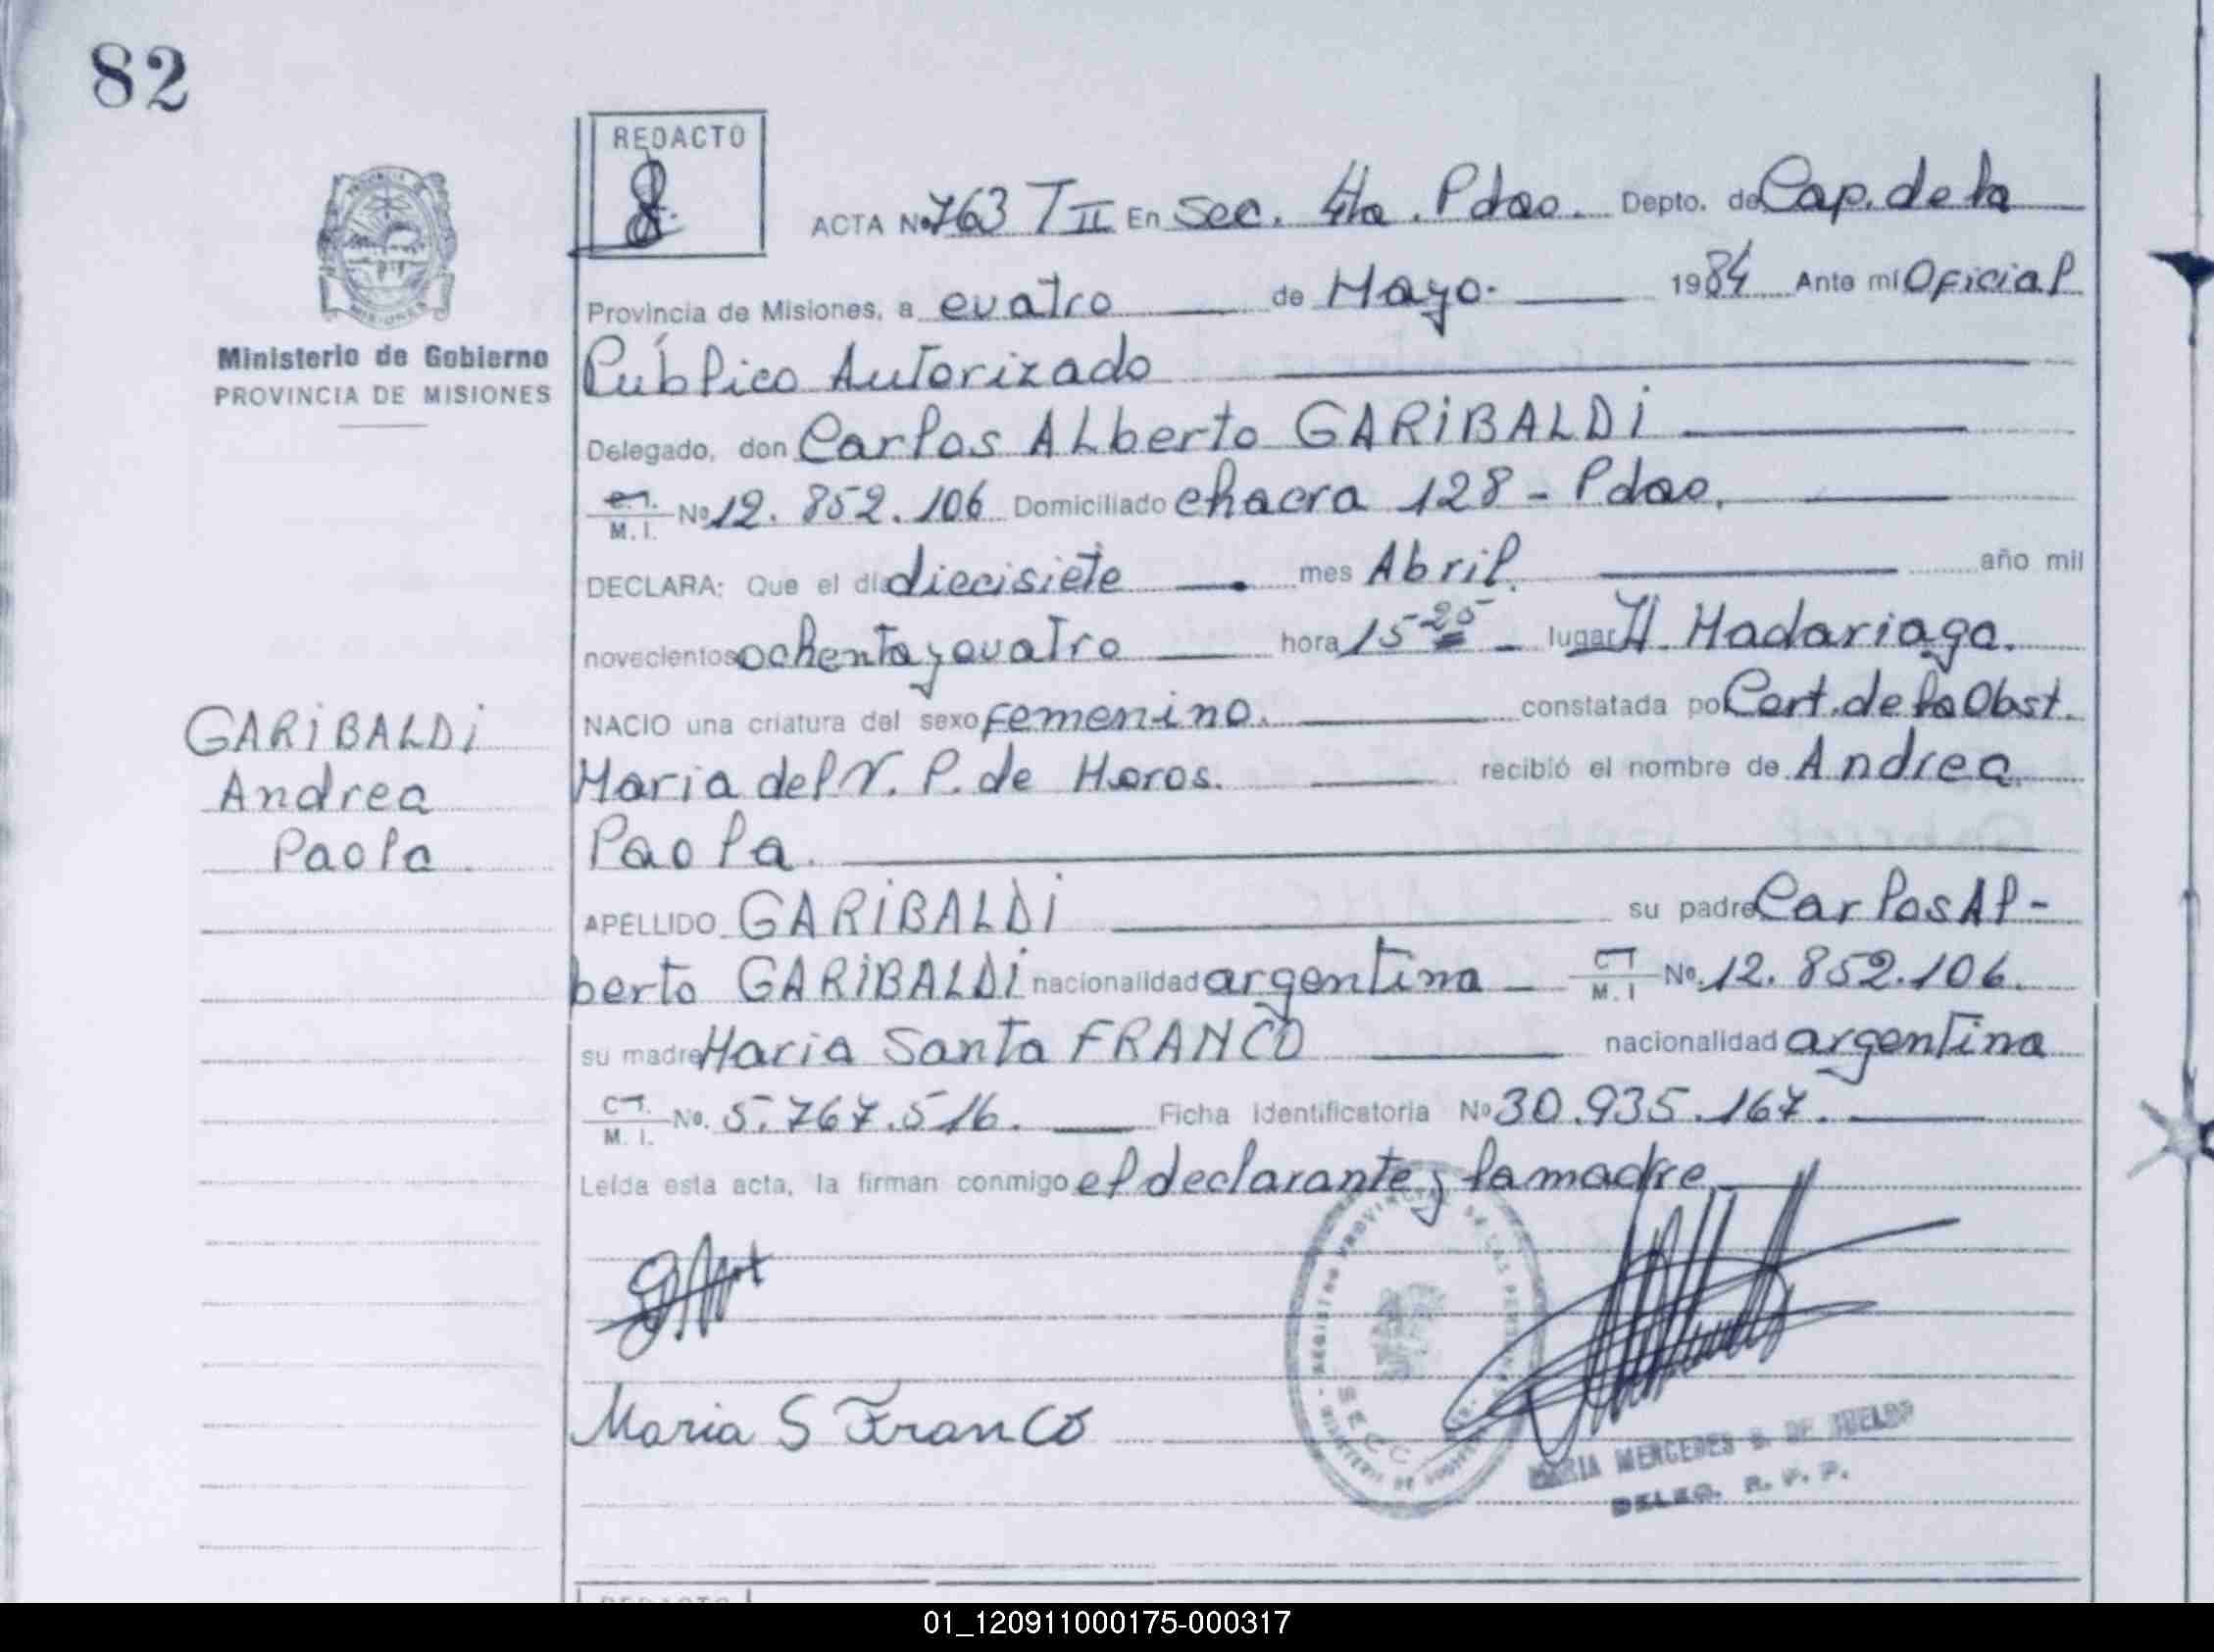 82
REDACTO
ACTA Nº 763 T II En Sec. 4ta. Pdas. Depto. de Cap. de la
Provincia de Misiones, a cuatro de Mayo. 1984 Ante mí Oficial
Ministerio de Gobierno
PROVINCIA DE MISIONES
Público Autorizado
Delegado, don Carlos Alberto GARiBALDi
C.I. M.I. Nº 12.852.106 Domiciliado chacra 128 - Pdas.
DECLARA: Que el día diecisiete mes Abril. año mil
novecientos ochenta y cuatro hora 15-25 - lugar H. Madariaga.
NACIO una criatura del sexo femenino. constatada por Cert. de la Obst.
Maria del V. P. de recibió el nombre de Andrea
Paola.
GARiBALDi
Andrea
Paola
APELLIDO GARiBALDi su padre Carlos Al-
berto GARiBALDi nacionalidad argentina - C.I. M.I Nº 12.852.106.
su madre Maria Santa FRANCO nacionalidad argentina
C.I. M.I. No. 5.767.516. Ficha identificatoria Nº 30.935.167.
Leída esta acta, la firman conmigo el declarante y la madre
Maria S Franco
MARIA MERCEDES DE
DELEG. R. P. P.
01_120911000175-000317